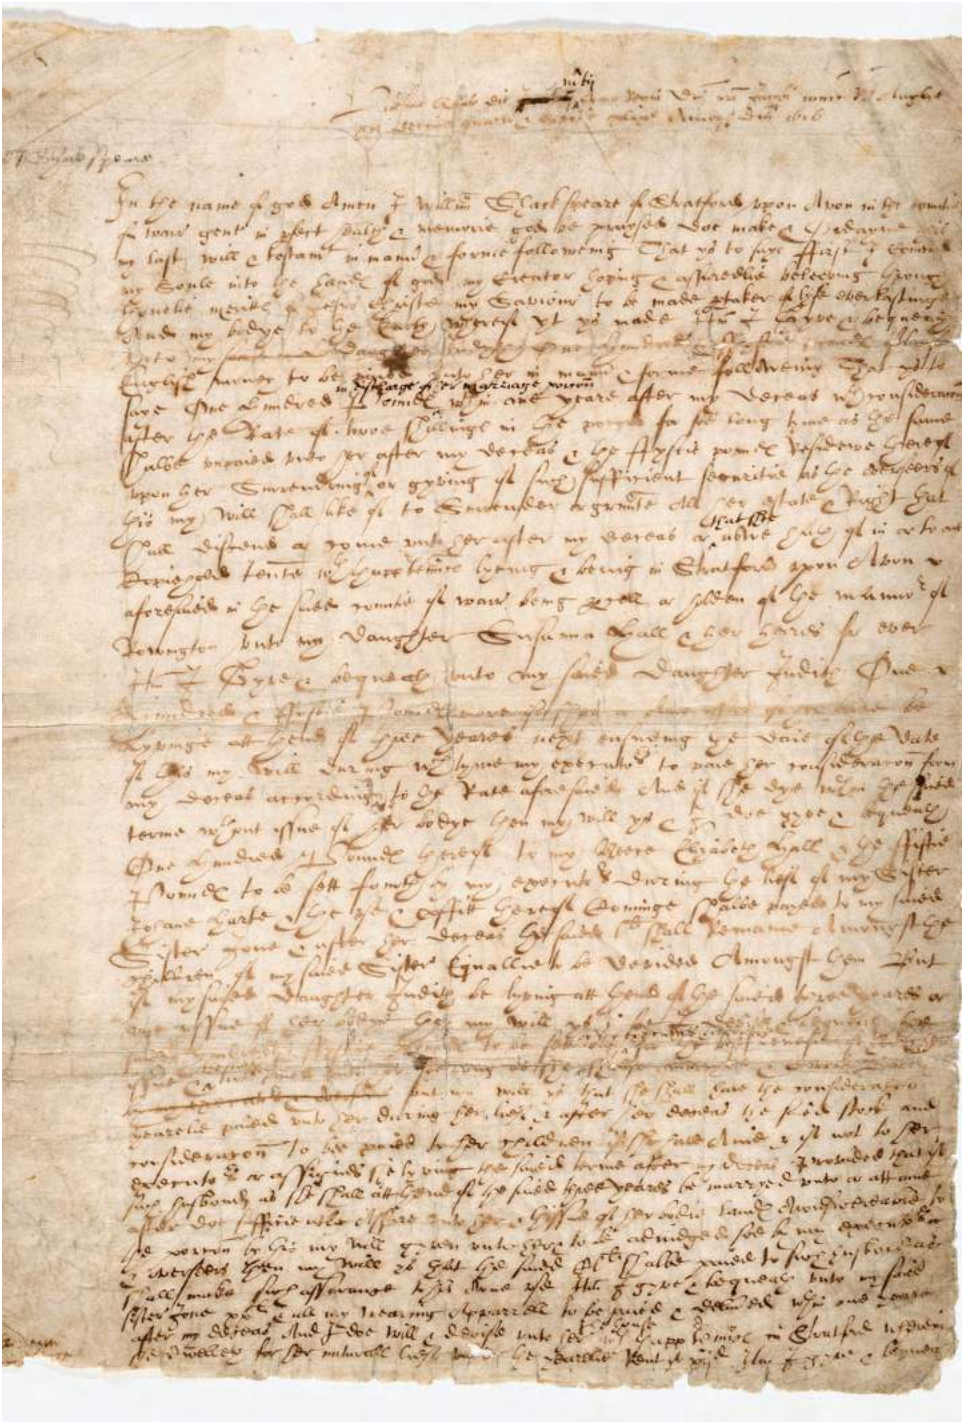 Martij
anno 1616
Shakspeare
In the name of god Amen I Willim Shackspeare of Stratford vpon Avon in the countie
of warr gent in pfect health & memorie god be praysed doe make & Ordayne this
my last will & testamt in mann & forme followeing That ys to saye ffirst I Comend
my Soule into the hands of god my Creator hoping & assuredlie beleeving through
thonelie meritts of Jesus Christe my Saviour to be made ptaker of lyfe everlastinge
And my bodye to the Earth whereof yt ys made Itm I Gyve & bequeath
vnto my Daughter Judyth One Hundred
English money to be paied vnto her in mann & forme followeing That ys to
in discharge of her marriage porcion
saye One Hundred Pounds wthin one yeare after my Deceas wth consideracion
after the Rate of twoe shillings in the pound for soe long tyme as the same
shalbe vnpaied vnto her after my deceas & the ffyftie pounds Residewe thereof
vpon her Surrendring of or gyving of such sufficient securitie as the overseers of
this my Will shall like of to Surrender or graunte All her estate & Right that
that she
shall discend or come vnto her after my deceas or nowe hath of in or to one
Copiehold tente wth thappurtennces lyeing & being in Stratford vpon Avon
aforesaied in the saied countie of warr being pcell or holden of the mannor of
Rowington vnto my Daughter Susanna Hall & her heires for ever
Itm I Gyve & bequeath vnto my saied Daughter Judith One
Hundred & ffyftie Pounds more
Lyvinge att thend of three Yeares next ensueing the daie of the Date
of this my Will during wch tyme my executors to paie her consideracion from
my deceas according to the Rate aforesaied And if she dye wthin the saied
terme wthout issue of her bodye then my will ys & I doe gyve & bequeath
One Hundred Pounds thereof to my Neece Elizabeth Hall & the ffiftie
Pounds to be sett fourth by my executors during the lief of my Sister
Johane Harte & the vse & pffitt thereof Cominge shalbe payed to my saied
Sister Jone & after her deceas the saied lli shall Remaine Amongst the
children of my saied Sister Equallie to be devided Amongst them But
if my saied Daughter Judith be lyving att thend of the saied three yeares or
anie yssue of her bodye then my will ys
but my will ys that she shall have the consideracion
yearelie paied vnto her during her lief & after her deceas the saied stock and
consideracion to bee paied to her children if she have Anie & if not to her
executors or assignes she lyving the saied terme after my deceas Provided that if
such husbond as she shall att thend of the saied three yeares be marryed vnto or att anie
after doe sufficientlie Assure vnto her & thissue of her bodie lands Awnswereable to
the porcion by this my will gyven vnto her & to be adiudged soe by my executors &
overseers then my will ys that the saied Clli shalbe paied to such husbond as
shall make such assurance to his owne vse Itm I gyve & bequeath vnto my saied
sister Jone xxli & all my wearing Apparrell to be paied & deliuered wthin one yeare
after my deceas And I doe will & devise vnto her the house wth thappurtennces in Stratford wherein
she dwelleth for her naturall lief vnder the yearelie Rent of xijd Itm I gyve & bequeath